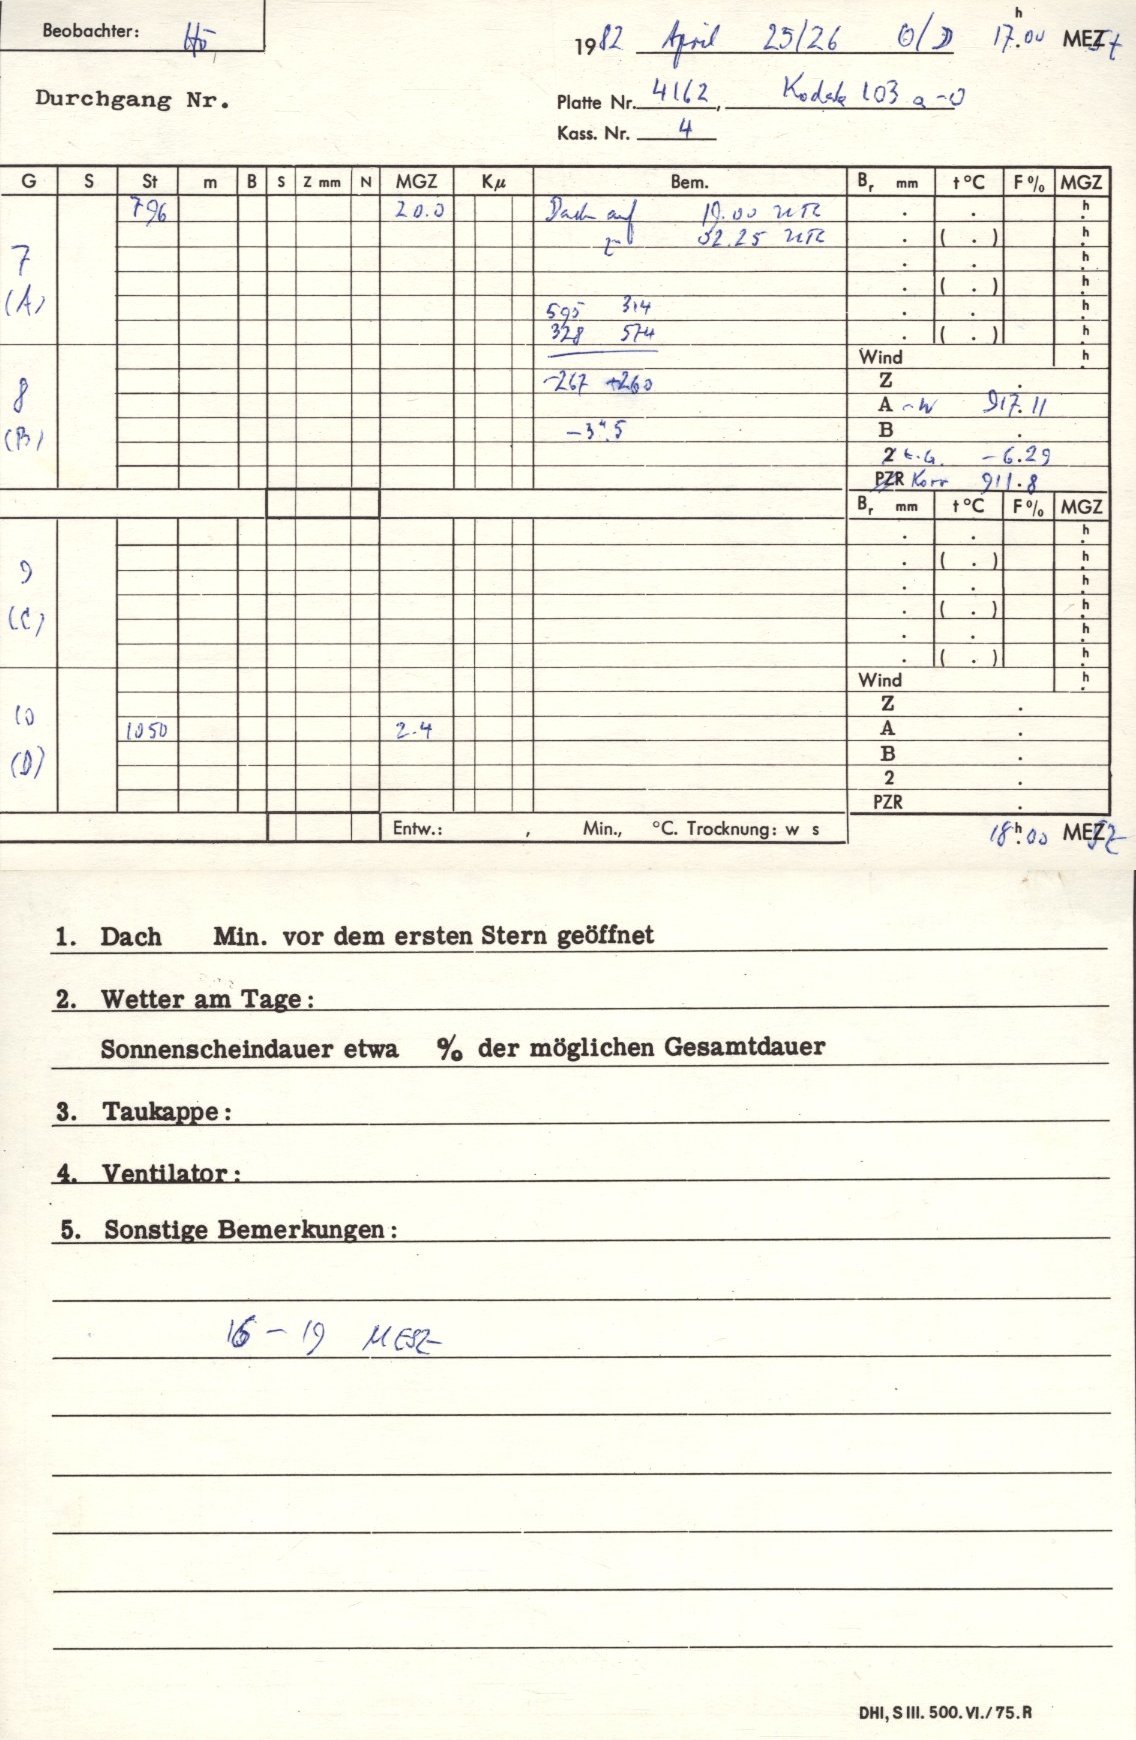 Beobachter: Hö
1982 April 25/26 O/D 17h.00 MEZ
Durchgang Nr.
Platte Nr. 4162, Kodak 103 a-O
Kass. Nr. 4
G S St m B S Z mm N MGZ Kμ Bem. Br mm t °C F % MGZ
796 20.0 Dach auf 19.00 UTC . . h
7 z 02.25 UTC . ( . ) h
. . h
(A) . ( . ) h
595 314 . . h
328 574 . ( . ) h
Wind h
8 -267 +260 Z .
A -W 917.11
(B) -3".5 B .
2 t.G. -6.29
PZR Korr 911.8
Br mm t °C F % MGZ
. . h
9 . ( . ) h
. . h
(C) . ( . ) h
. . h
. ( . ) h
Wind h
10 Z .
1050 2.4 A .
(D) B .
2 .
PZR .
Entw.: , Min., °C. Trocknung: w s
18h.00 MEZ
1. Dach Min. vor dem ersten Stern geöffnet
2. Wetter am Tage:
Sonnenscheindauer etwa % der möglichen Gesamtdauer
3. Taukappe:
4. Ventilator:
5. Sonstige Bemerkungen:
16 - 19 MESZ
DHI, S III. 500. VI./75. R